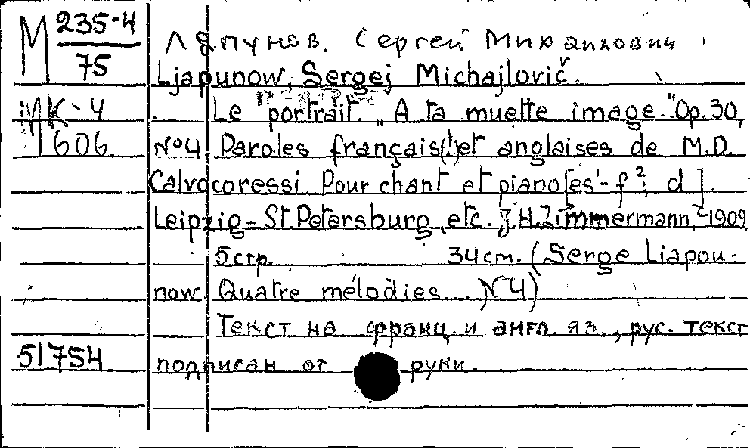 М 235-4
75
Ляпунов. Сергей Михайлович
Ljapunow, Sergej Michajlovič.
МК-4
Le portrait. „A ta muette image." Op. 30,
1606
№4. Paroles français(!) et anglaises de M.D.
Calvocoressi Pour chant et piano [es'-f²; d].
Leipzig-St. Petersburg, etc. J.H. Zimmermann, 1909
5стр. 34см. (Serge Liapou-
now. Quatre mélodies... N4)
Текст на франц. и англ. яз., рус. текст
51754
подписан от руки.